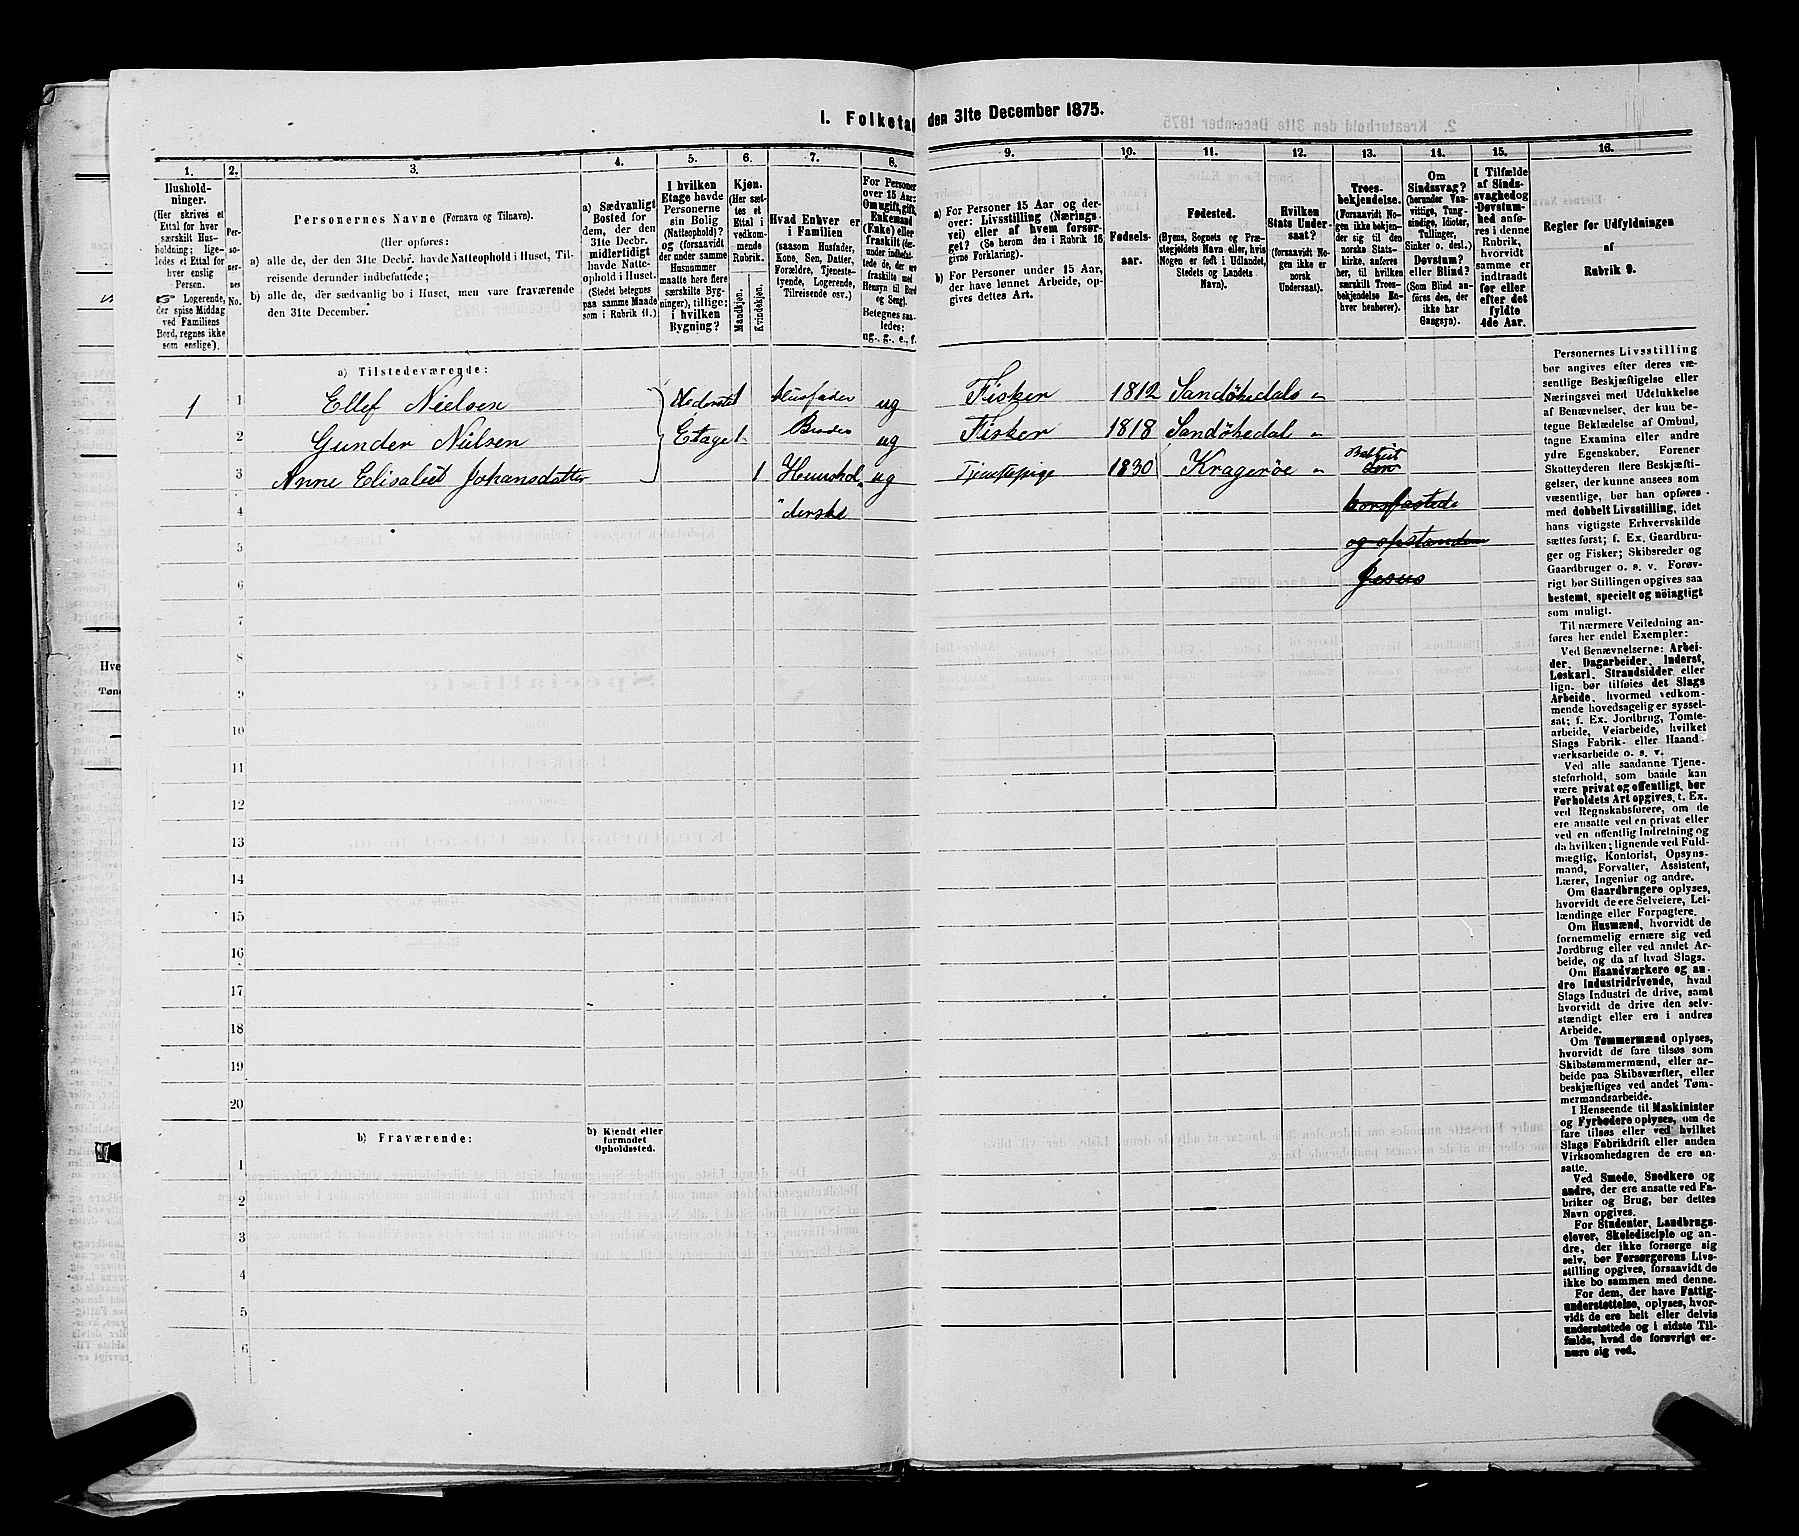 I. Folketal den 31te December 1875.
1. 2. 3. 4. 5. 6. 7. 8. 9. 10. 11. 12. 13. 14. 15. 16.
Hushold-
ninger.
(Her skrives et
Ettal for hver
særskilt Hus-
holdning; lige-
ledes et Ettal for
hver enslig
Person.
☞ Logerende,
der spise Middag
ved Familiens
Bord, regnes ikke
som enslige).
Per-
so-
ner-
nes
No.
Personernes Navne (Fornavn og Tilnavn).
(Her opføres:
a) alle de, der den 31te Decbr. havde Natteophold i Huset, Til-
reisende derunder indbefattede;
b) alle de, der sædvanlig bo i Huset, men vare fraværende
den 31te December.
a) Sædvanligt
Bosted for
dem, der den
31te Decbr.
midlertidigt
havde Natte-
ophold i Huset.
(Stedet betegnes
paa samme Maade
som i Rubrik 11.)
I hvilken
Etage havde
Personerne
sin Bolig
(Natteophold)?
og (forsaavidt
der under samme
Husnummer
maatte høre flere
særskilte Byg-
ninger), tillige:
i hvilken
Bygning?
Kjøn.
(Her sæt-
tes et
Ettal i
vedkom-
mende
Rubrik.
Mandkjøn.
Kvindekjøn.
Hvad Enhver er
i Familien
(saasom Husfader,
Kone, Søn, Datter,
Forældre, Tjeneste-
tyende, Logerende,
Tilreisende osv.)
For Personer
over 15 Aar:
Om ugift, gift,
Enkemand
(Enke) eller
fraskilt (der-
under indbefat-
tede de, der ere
fraskilte med
Hensyn til Bord
og Seng).
Betegnes saa-
ledes:
ug., g., e., f.
a) For Personer 15 Aar og der-
over: Livsstilling (Nærings-
vei) eller af hvem forsør-
get? (Se herom den i Rubrik 16
givne Forklaring).
b) For Personer under 15 Aar,
der have lønnet Arbeide, op-
gives dettes Art.
Fødsels-
aar.
Fødested.
(Byens, Sognets og Præ-
stegjeldets Navn eller, hvis
Nogen er født i Udlandet,
Stedets og Landets
Navn).
Hvilken
Stats Under-
saat?
(forsaavidt No-
gen ikke er
norsk
Undersaat).
Troes-
bekjendelse.
(Forsaavidt No-
gen ikke bekjen-
der sig til den
norske Stats-
kirke, anføres
her, til hvilken
særskilt Troes-
bekjendelse En-
hver henhører).
Om
Sindssvag?
(herunder Van-
vittige, Tung-
sindige, Idioter,
Tullinger,
Sinker o. desl.)
Døvstum?
eller Blind?
(Som Blind an-
føres den, der
ikke har
Gangsyn).
I Tilfælde
af Sinds-
svaghed og
Døvstum-
hed anfø-
res i denne
Rubrik,
hvorvidt
samme er
indtraadt
før eller
efter det
fyldte
4de Aar.
Regler for Udfyldningen
af
Rubrik 9.
a) Tilstedeværende:
1 1 Ellef Nielsen Nederste 1 Husfader ug Fisker 1812 Sandöhedals "
2 Gunder Nielsen Etage 1 Broder ug Fisker 1818 Sandöhedal "
3 Anne Elisabeth Johansdatter 1 Hunshol- ug Tjenestepige 1830 Kragerøe " Babtist
den
4 "derske korsfæstede
5 og opstandne
6 Jesus
7
8
9
10
11
12
13
14
15
16
17
18
19
20
b) Fraværende:
b) Kjendt eller
formodet
Opholdssted.
1
2
3
4
5
6
Personernes Livsstilling
bør angives efter deres væ-
sentlige Beskjæftigelse eller
Næringsvei med Udelukkelse
af Benævnelser, der kun be-
tegne Beklædelse af Ombud,
tagne Examina eller andre
ydre Egenskaber. Forener
Skatteyderen flere Beskjæfti-
gelser, der kunne ansees som
væsentlige, bør han opføres
med dobbelt Livsstilling, idet
hans vigtigste Erhvervskilde
sættes først; f. Ex. Gaardbru-
ger og Fisker; Skibsreder og
Gaardbruger o. s. v. Forøv-
rigt bør Stillingen opgives saa
bestemt, specielt og nöiagtigt
som muligt.
Til nærmere Veiledning an-
føres her endel Exempler:
Ved Benævnelserne: Arbei-
der, Dagarbeider, Inderst,
Løskarl, Strandsidder eller
lign. bør tilføies det Slags
Arbeide, hvormed vedkom-
mende hovedsagelig er syssel-
sat; f. Ex. Jordbrug, Tomte-
arbeide, Veiarbeide, hvilket
Slags Fabrik- eller Haand-
værksarbeide o. s. v.
Ved alle saadanne Tjene-
steforhold, som baade kan
være privat og offentligt, bør
Forholdets Art opgives, t. Ex.
ved Regnskabsførere, om de
ere ansatte ved en privat eller
ved en offentlig Indretning og
da hvilken; lignende ved Fuld-
mægtig, Kontorist, Opsyns-
mand, Forvalter, Assistent,
Lærer, Ingeniør og andre.
Om Gaardbrugere oplyses,
hvorvidt de ere Selveiere, Lei-
lændinge eller Forpagtere.
Om Husmænd, hvorvidt de
fornemmelig ernære sig ved
Jordbrug eller ved andet Ar-
beide, og da af hvad Slags.
Om Haandværkere og an-
dre Industridrivende, hvad
Slags Industri de drive, samt
hvorvidt de drive den selv-
stændigt eller ere i andres
Arbeide.
Om Tømmermænd oplyses,
hvorvidt de fare tilsøs som
Skibstømmermænd, eller ar-
beide paa Skibsværfter, eller
beskjæftiges ved andet Tøm-
mermandsarbeide.
I Henseende til Maskinister
og Fyrbødere oplyses, om de
fare tilsøs eller ved hvilket
Slags Fabrikdrift eller anden
Virksomhedsgren de ere an-
satte.
Ved Smede, Snedkere og
andre, der ere ansatte ved Fa-
briker og Brug, bør dettes
Navn opgives.
For Studenter, Landbrugs-
elever, Skoledisciple og an-
dre, der ikke forsørge sig
selv, bør Forsørgerens Livs-
stilling opgives, forsaavidt de
ikke bo sammen med denne.
For dem, der have Fattig-
understøttelse, oplyses, hvor-
vidt de ere helt eller delvis
understøttede og i sidste Til-
fælde, hvad de forøvrigt er-
nære sig ved.